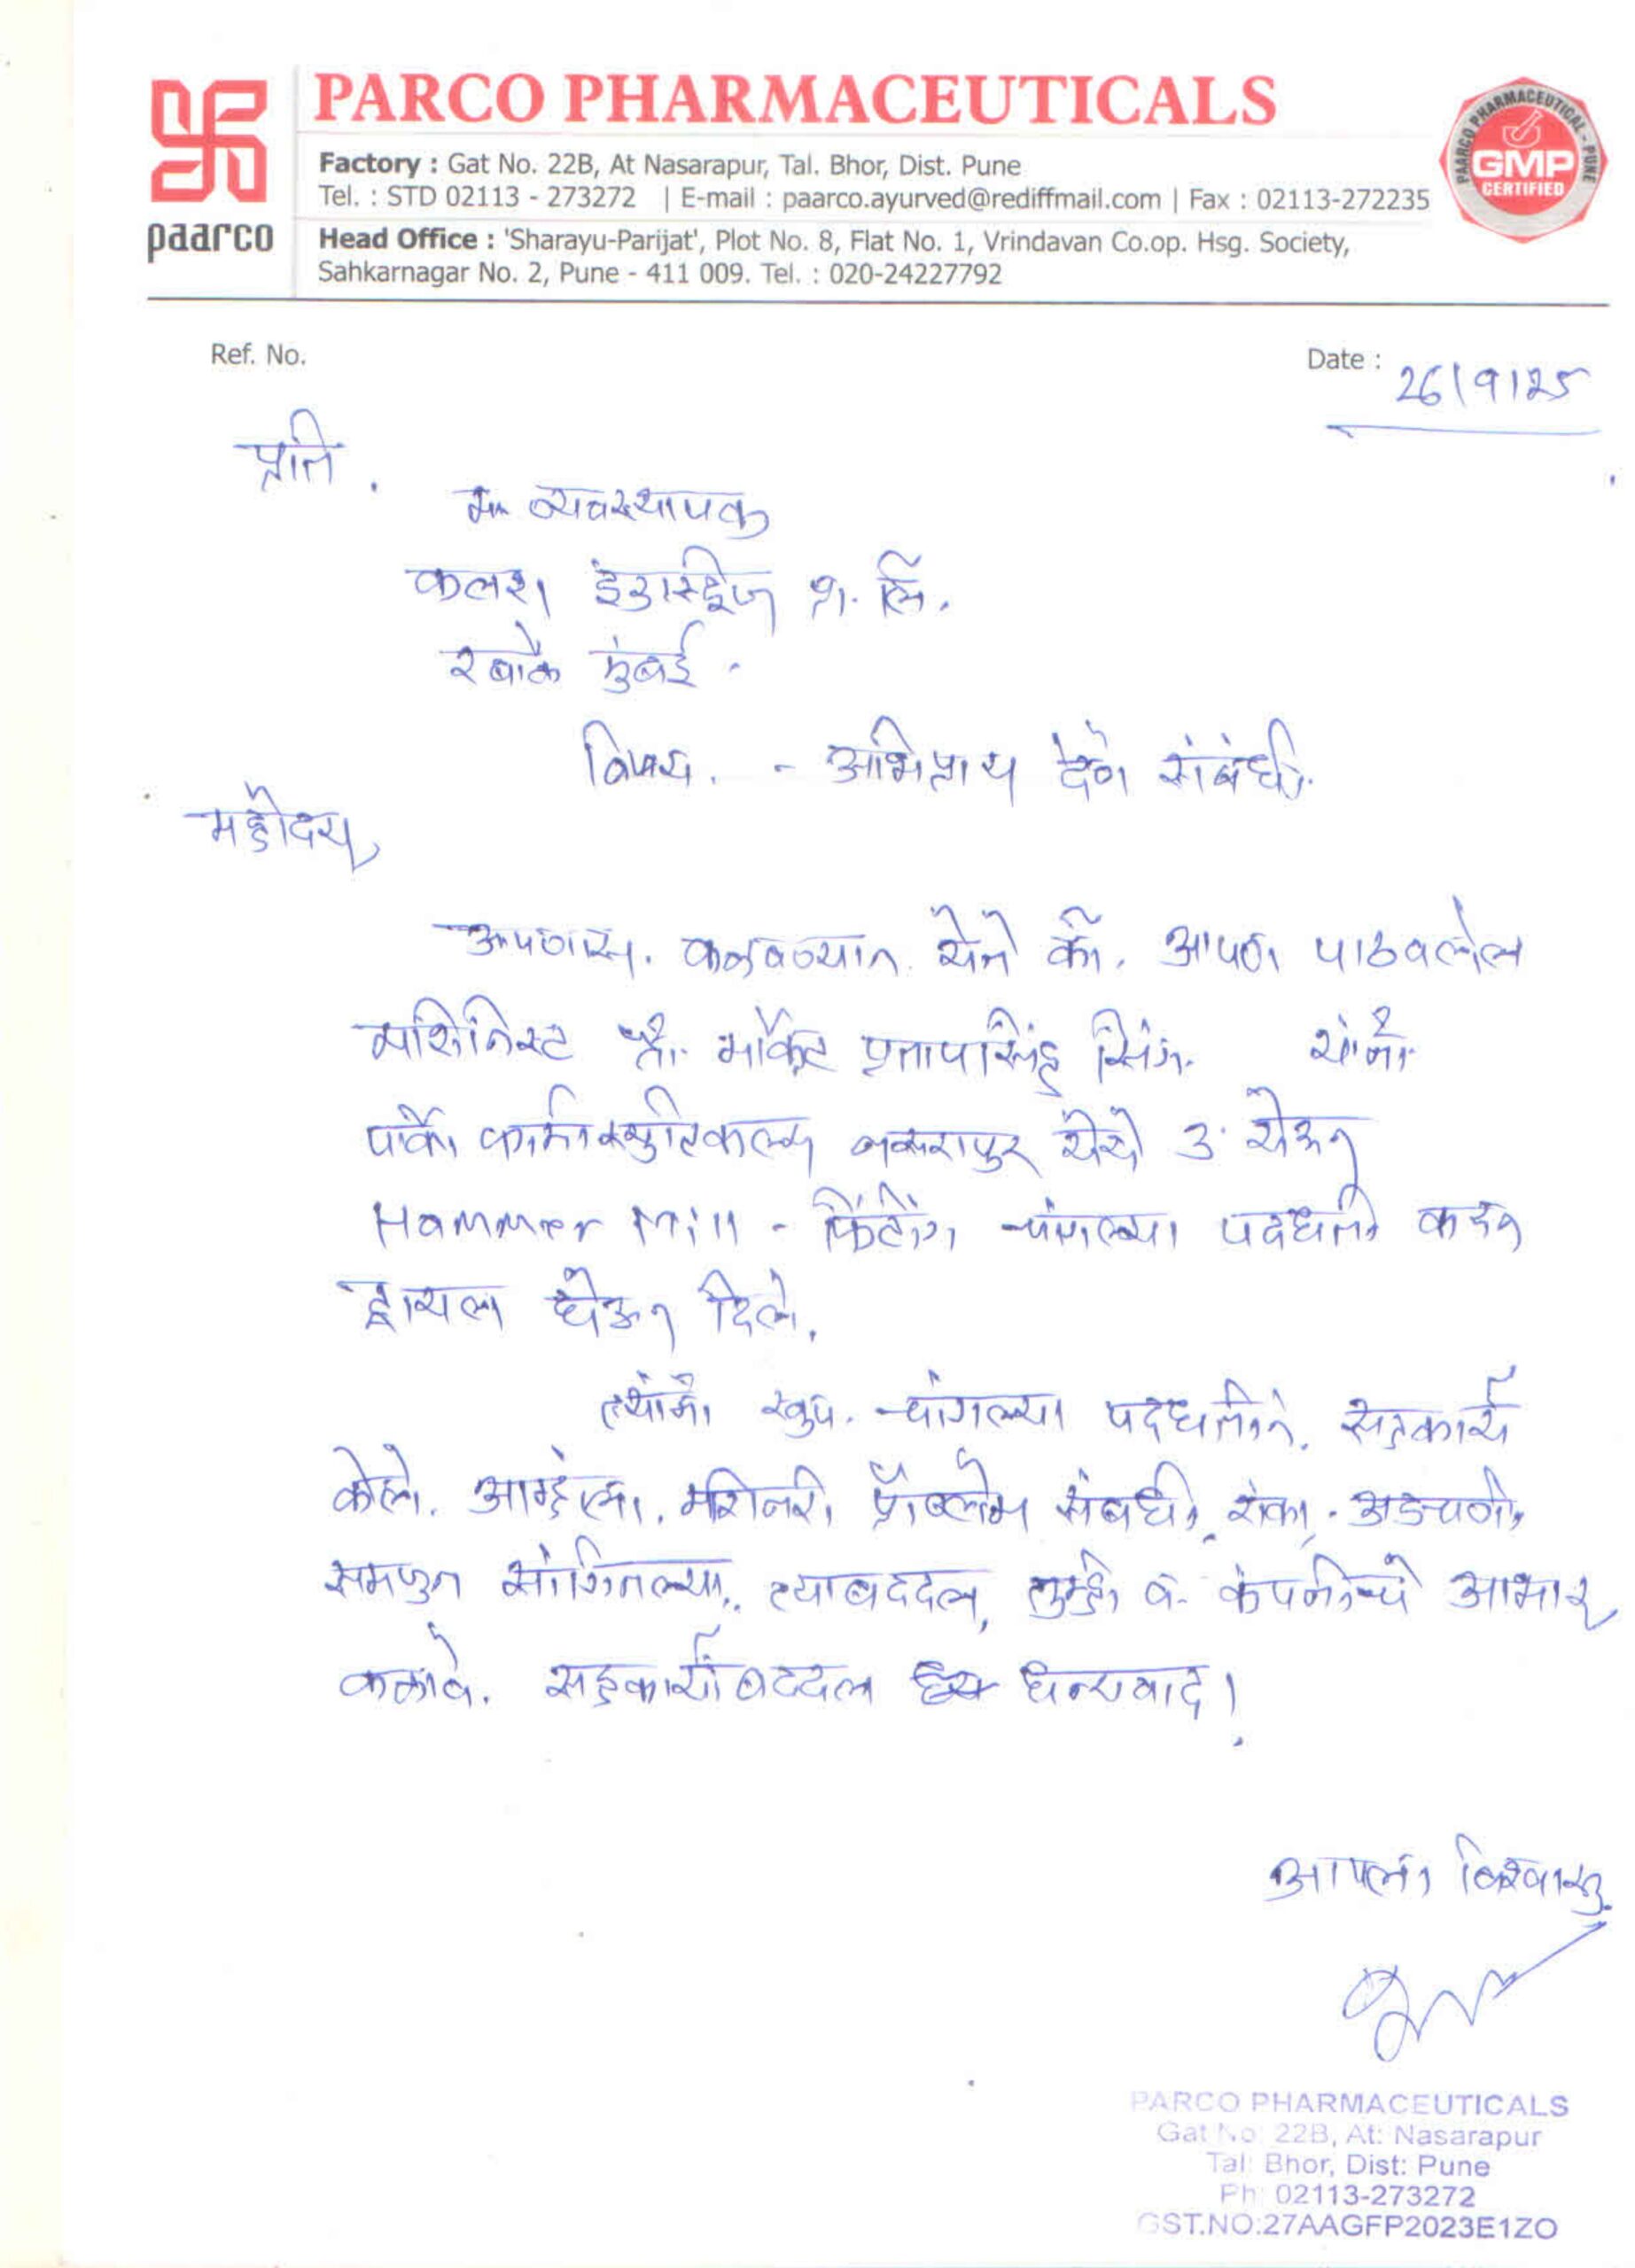 PARCO PHARMACEUTICALS
paarco
Factory : Gat No. 22B, At Nasarapur, Tal. Bhor, Dist. Pune
Tel. : STD 02113 - 273272 | E-mail : paarco.ayurved@rediffmail.com | Fax : 02113-272235
Head Office : 'Sharayu-Parijat', Plot No. 8, Flat No. 1, Vrindavan Co.op. Hsg. Society,
Sahkarnagar No. 2, Pune - 411 009. Tel. : 020-24227792
PAARCO PHARMACEUTICAL - PUNE
GMP
CERTIFIED
Ref. No.
Date : 26/9/25
प्रति.
व्यवस्थापक
कलश इंडास्ट्रिज प्रा. लि.
रबाळे मुंबई.
विषय. - अभिप्राय देणे संबंधी.
महोदय,
आपणास. कळवण्यात येते की. आपण पाठवलेल
मशिनिस्ट श्री. प्रतापसिंह सिंग. यांनी
पार्को फार्मास्युटिकल्स नसरापुर येथे येऊन
Hammer Mill - फिटींग चांगल्या पद्धतीने करुन
ट्रायल घेऊन दिले.
त्यांनी खुप. चांगल्या पद्धतीने. सहकार्य
केले. आम्हाला. मशिनरी प्रॉब्लेम संबंधी, शंका. अडचणी,
समजुन सांगितल्या. त्याबददल, तुम्ही व. कंपनीचे आभार
कळावे. सहकार्याबददल धन्यवाद!
आपला विश्वासु.
PARCO PHARMACEUTICALS
Gat No: 22B, At: Nasarapur
Tal: Bhor, Dist: Pune
Ph: 02113-273272
GST.NO:27AAGFP2023E1ZO